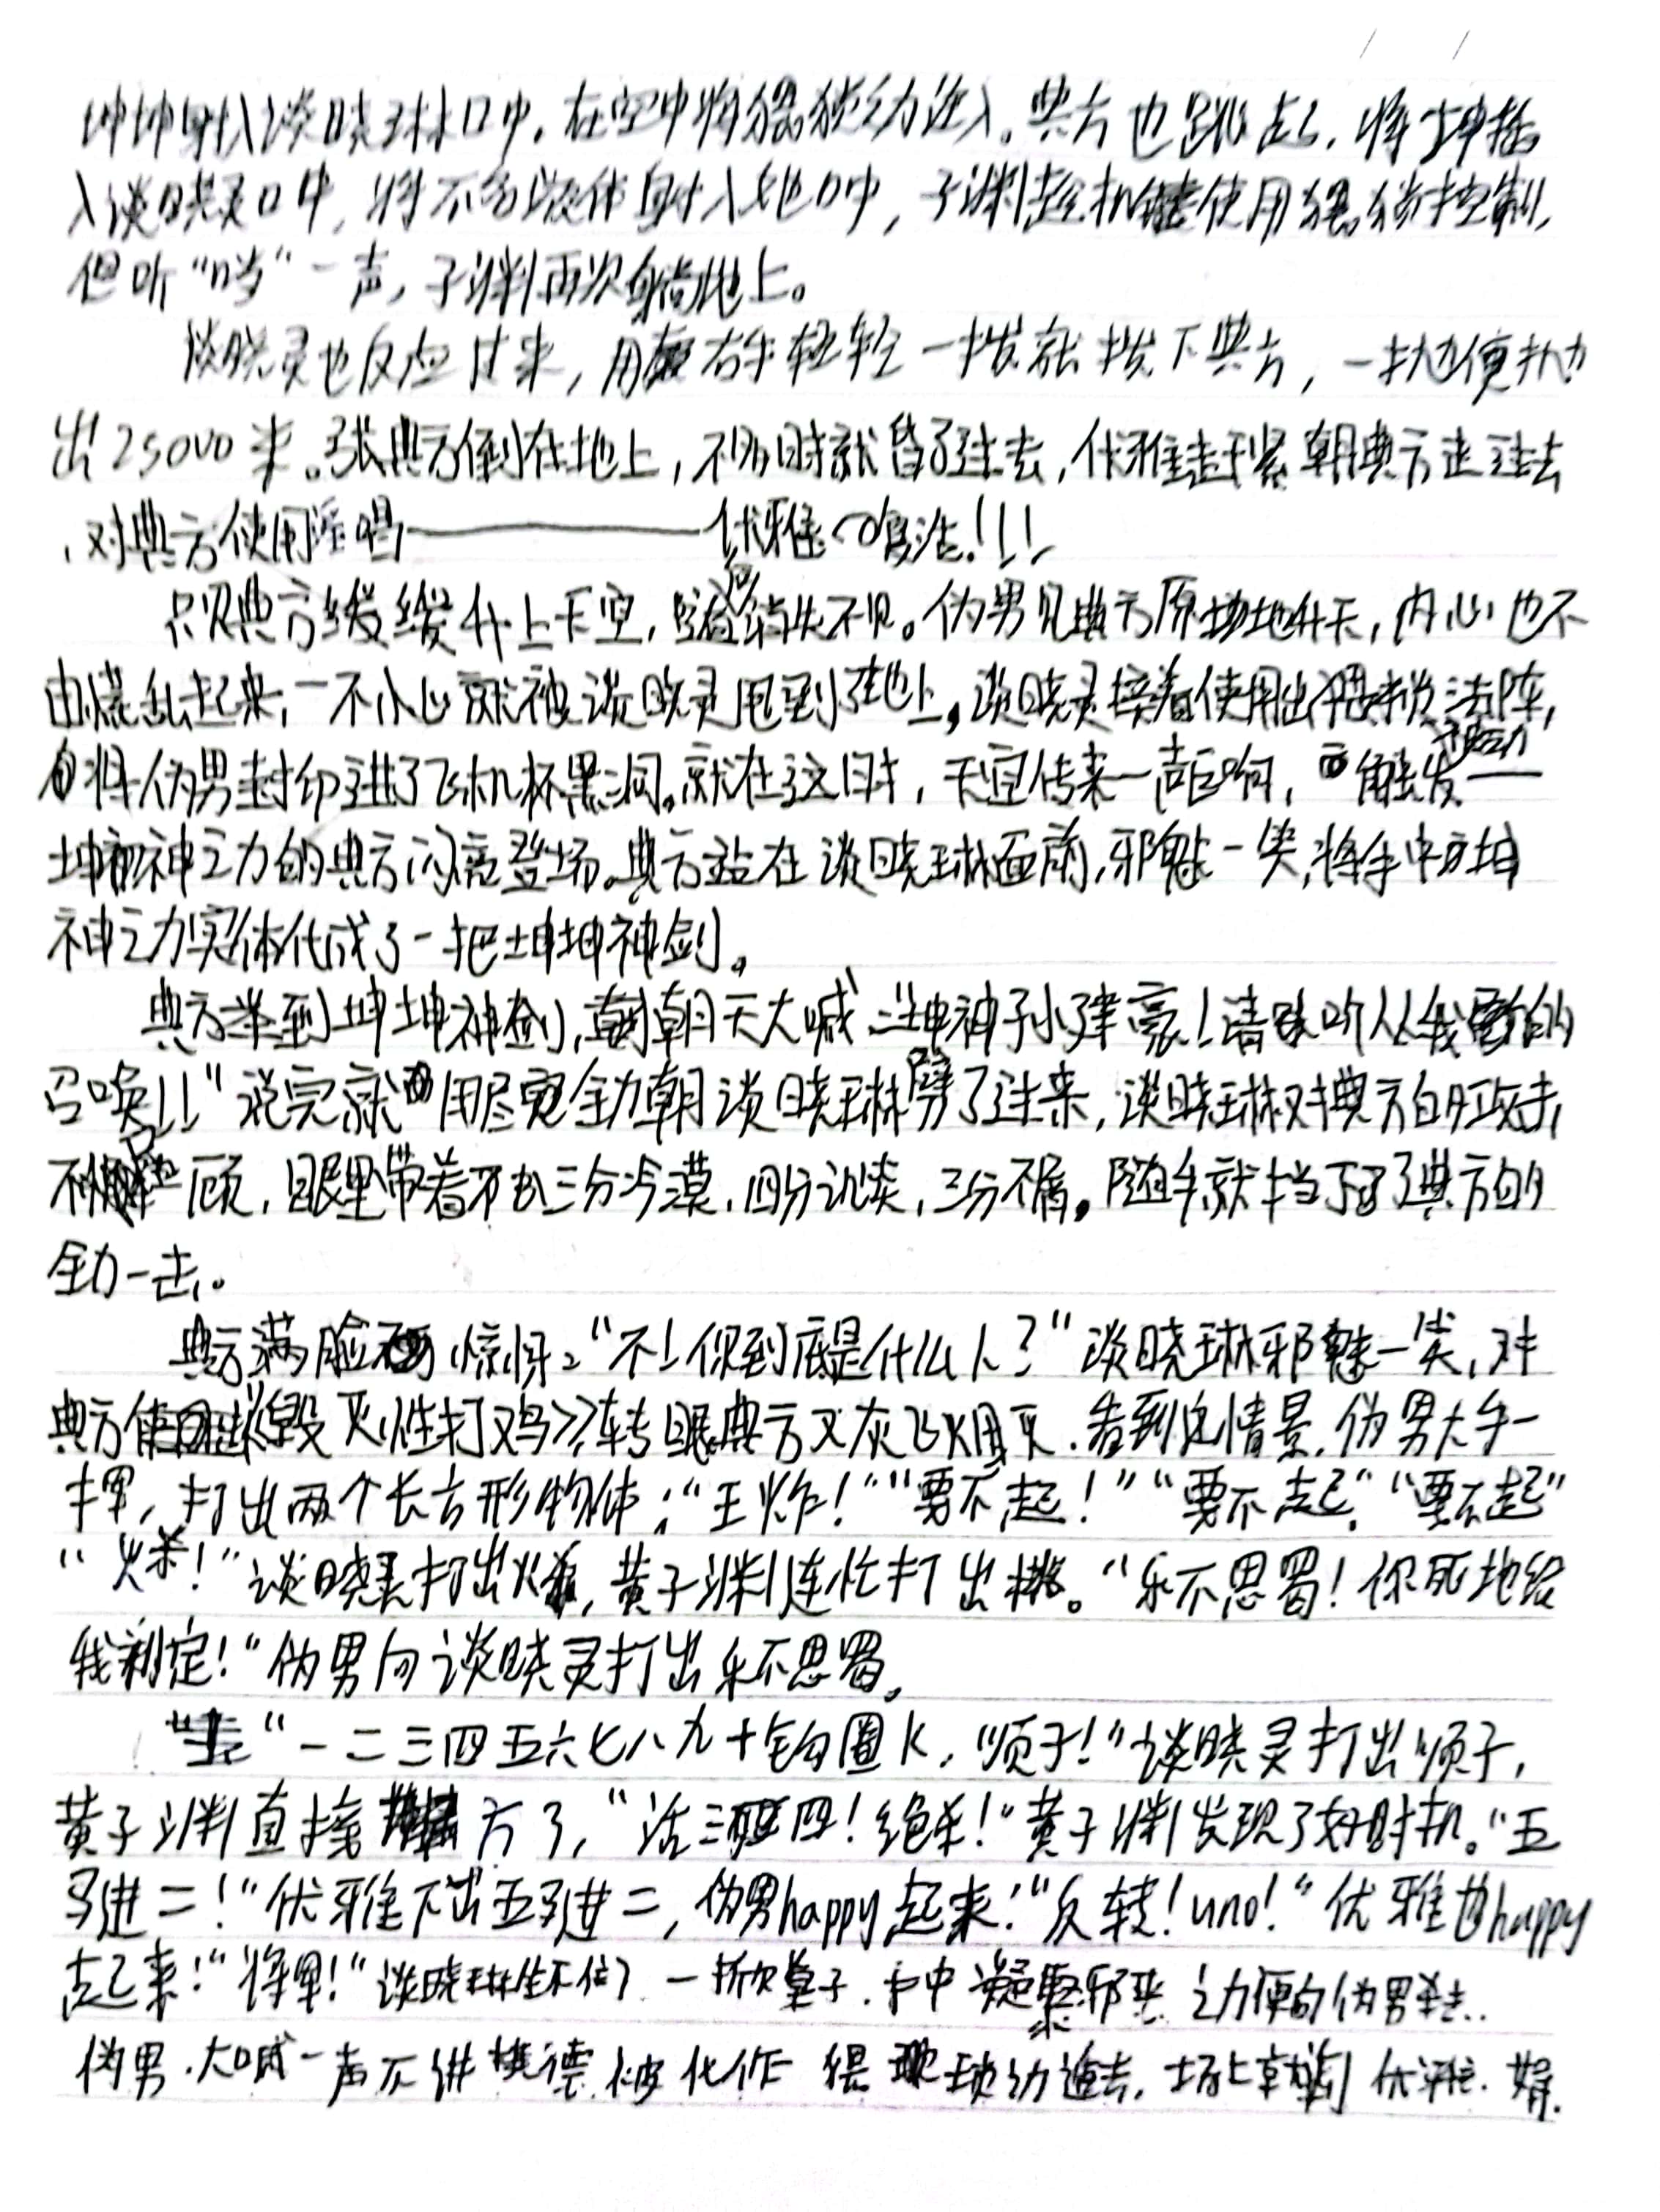 坤坤射入谈晓琳口中，在空中将猥琐幼进入。典方也跳起，将坤插
入谈晓灵口中，将不名液体射入她口中，子渊趁机使用猥琐控制，
但听“当”一声，子渊再次躺地上。
谈晓灵也反应过来，用右手轻轻一拨就拨下典方，一抛便抛
出25000米。张典方倒在地上，不多时就昏了过去，优雅赶紧朝典方走过去
，对典方使用 唱——优雅 复活！！！
只见典方缓缓升上天空，消失不见。伪男见典方原地升天，内心也不
由慌乱起来，一不小心就被谈晓灵甩到了地上，谈晓灵接着使用出猥琐法阵，
将伪男封印进了飞机杯黑洞。就在这时，天空传来一声巨响，触发——
坤神之力的典方闪亮登场。典方站在谈晓琳面前，邪魅一笑，将手中坤
神之力实体化成了一把坤坤神剑。
典方举到坤坤神剑，朝天大喊：“坤神子小 豪！请听从我的
召唤！！”说完就用尽全力朝谈晓琳劈了过来，谈晓琳对典方的攻击，
不屑一顾，眼里带着三分冷漠，四分讥笑，三分不屑。随手就挡下了典方的
全力一击。
典方满脸惊愕：“不！你到底是什么人？”谈晓琳邪魅一笑，对
典方使用《毁灭性打鸡》转眼典方又灰飞烟灭。看到这情景，伪男大手一
挥，打出两个长方形物体：“王炸！”“要不起！”“要不起”“要不起”
“杀！”谈晓灵打出杀，黄子渊连忙打出桃。“乐不思蜀！你死地给
我判定！”伪男向谈晓灵打出乐不思蜀。
“一二三四五六七八九十钩圈K，顺子！”谈晓灵打出顺子，
黄子渊直接 方了，“活三死四！绝杀！”黄子渊发现了好时机。“五
马进二！”优雅下出五马进二，伪男happy起来：“反转！uno！”优雅也happy
起来！“将军！”谈晓琳坐不住了 一掀桌子，手中凝聚邪恶之力便向伪男杀去..
伪男，大喊一声不讲武德 被化作 猥琐幼 进去，场上就剩优雅，婿.